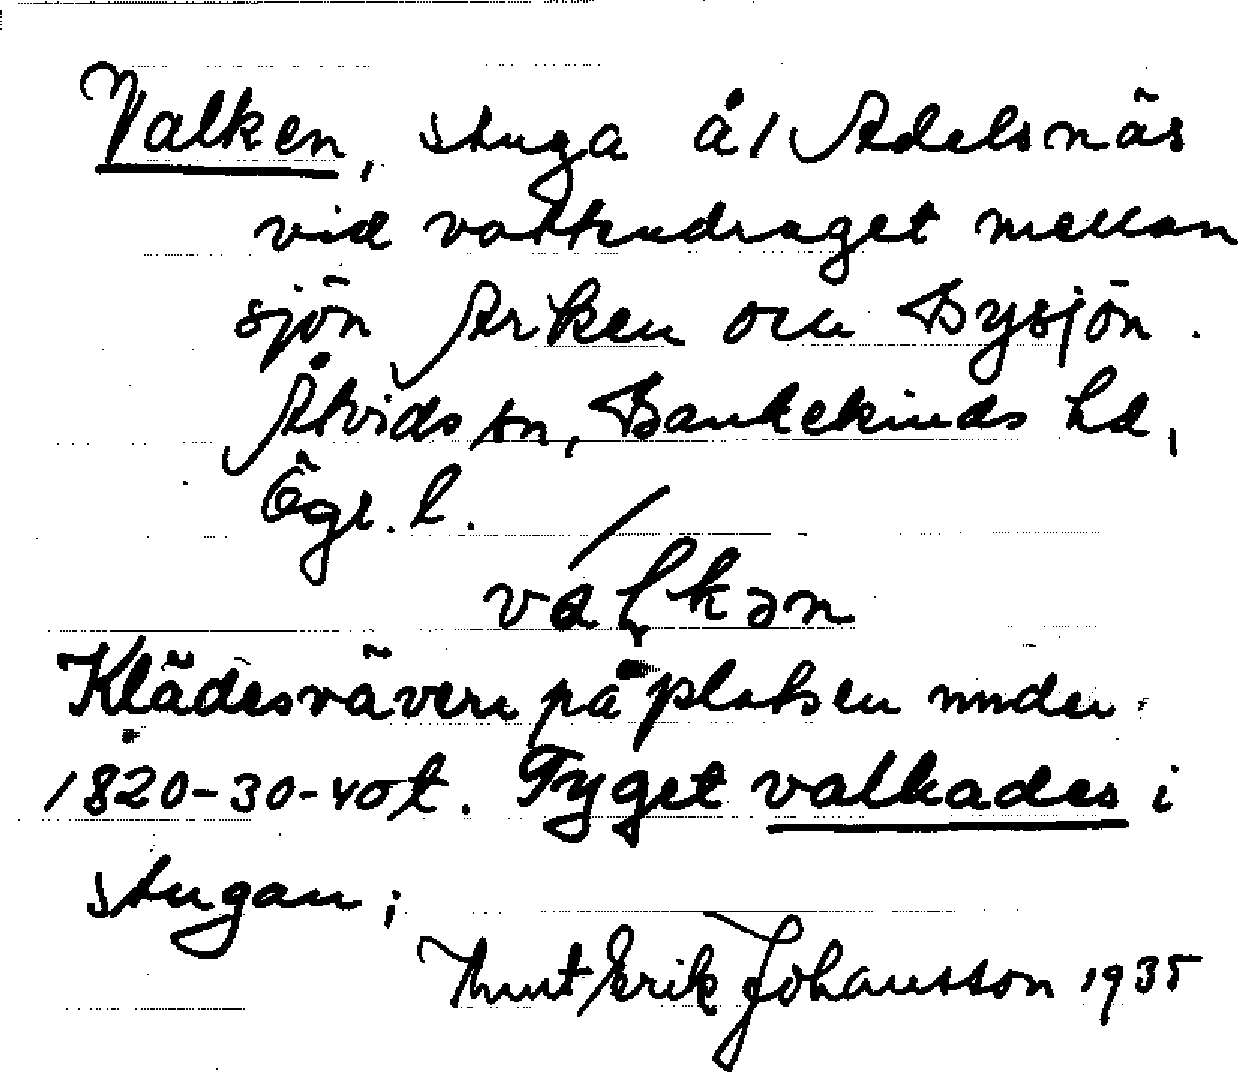 Valken, stuga å/ Adelsnäs
vid vattendraget mellan
sjön Ärken och Bysjön.
Åtvids sn, Bankekinds hd,
Ögl. l.
valkən
Klädesväveri på platsen under
1820-30-40 t. Tyget valkades i
stugan;
Knut Erik Johansson 1935